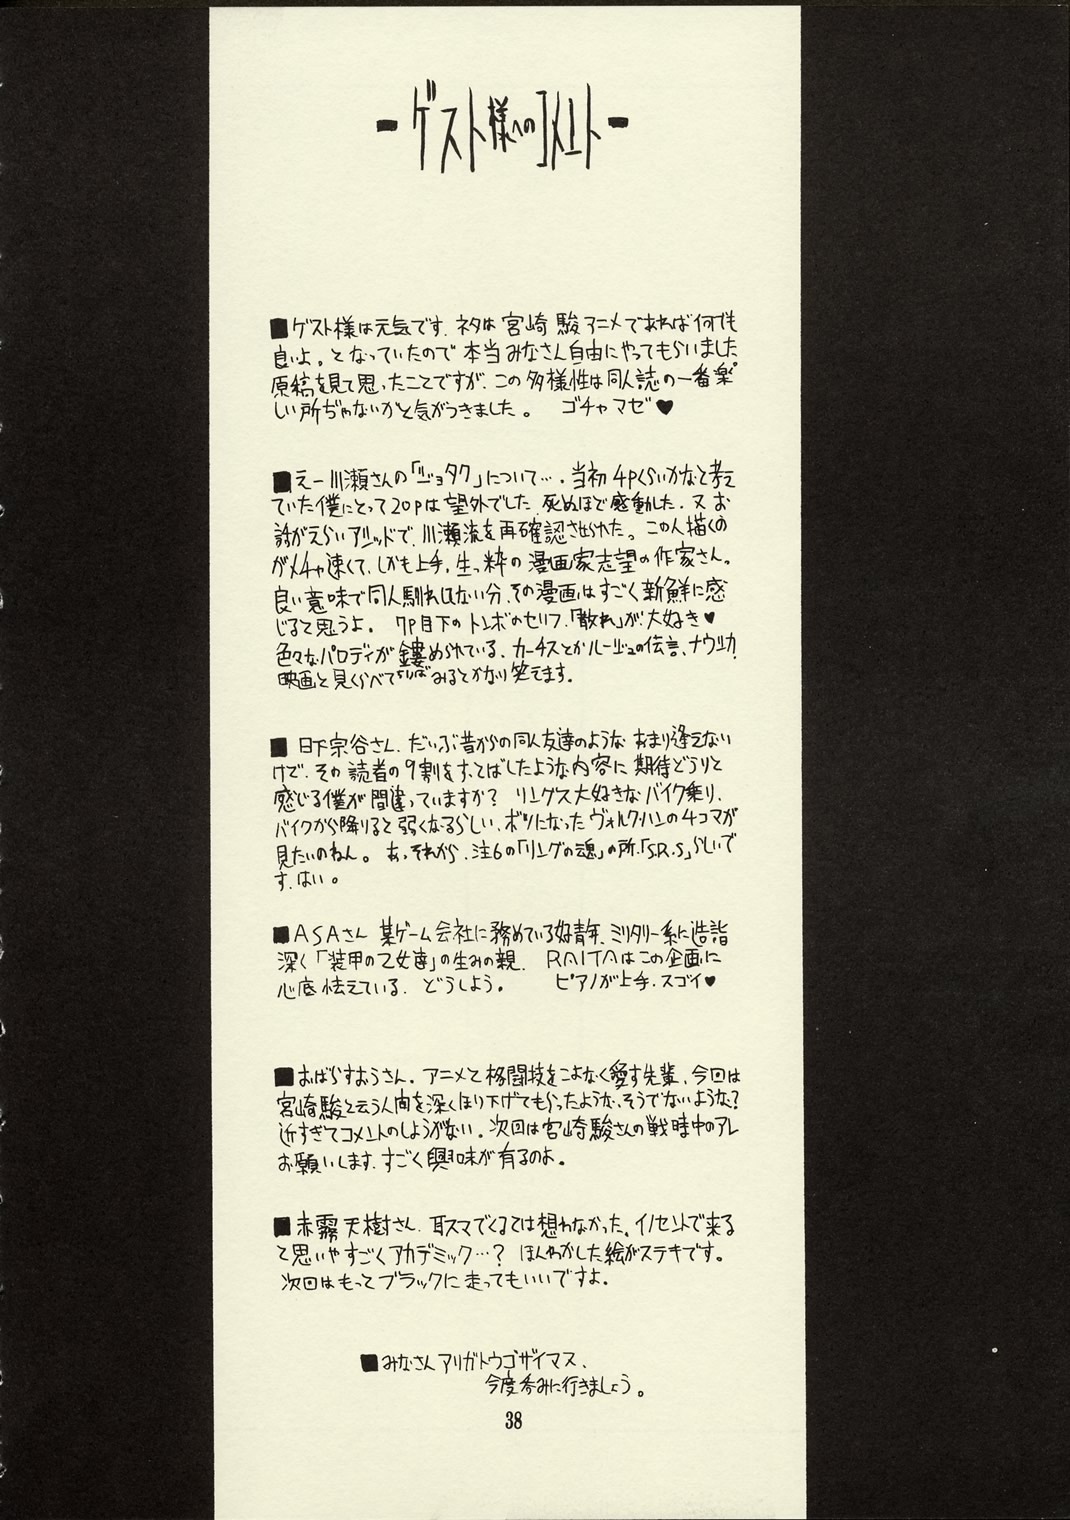 －ゲスト様へのコメント－
■ゲスト様は元気です。ネタは宮崎駿アニメであれば何でも
良いよ。となっていたので本当みなさん自由にやってもらいました。
原稿を見て思ったことですが、この多様性は同人誌の一番楽
しい所ぢゃないかと気がつきました。　ゴチャマゼ♥
■えー川瀬さんの「ジョタク」について…。当初4Pくらいかなと考え
ていた僕にとって20Pは望外でした。死ぬほど感動した。又お
話がえらいソリッドで、川瀬流を再確認させられた。この人描くの
がメチャ速くて、しかも上手。生っ粋の漫画家志望の作家さん。
良い意味で同人馴れしない分、その漫画はすごく新鮮に感
じると思うよ。7P目下のトンボのセリフ「散れ」が大好き♥
色々なパロディが鏤められている、カーチスとかルージュの伝言、ナウシカ。
映画と見くらべてみるとかなり笑えます。
■日下宗谷さん、だいぶ昔からの同人友達のような あまり逢えない
けど、その読者の9割をすっとばしたような内容に期待どうりと
感じる僕が間違っていますか？　リングス大好きなバイク乗り、
バイクから降りると弱くなるらしい、ボツになったヴォルク・ハンの4コマが
見たいのねん。あっそれから、注6の「リングの魂」の所「S.R.S」らしいで
す、はい。
■ASAさん 某ゲーム会社に務めている好青年、ミリタリー系に造詣
深く「装甲の乙女達」の生みの親。RAITAはこの企画に
心底怯えている。どうしよう。　ピアノが上手、スゴイ♥
■おばらすおうさん。アニメと格闘技をこよなく愛す先輩、今回は
宮崎駿と云う人間を深くほり下げてもらったような、そうでないような？
近すぎてコメントのしようがない。次回は宮崎駿さんの戦時中のアレ
お願いします、すごく興味が有るのよ。
■赤霧天樹さん。耳スマでくるとは想わなかった。イノセントで来る
と思いやすごくアカデミック…？ほんわかした絵がステキです。
次回はもっとブラックに走ってもいいですよ。
■みなさんアリガトウゴザイマス、
今度呑みに行きましょう。
38